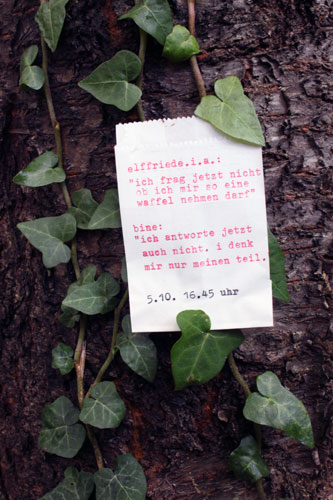 elffriede.i.a.:
"ich frag jetzt nicht
ob ich mir so eine
waffel nehmen darf"
bine:
"ich antworte jetzt
auch nicht. i denk
mir nur meinen teil.
5.10. 16.45 uhr